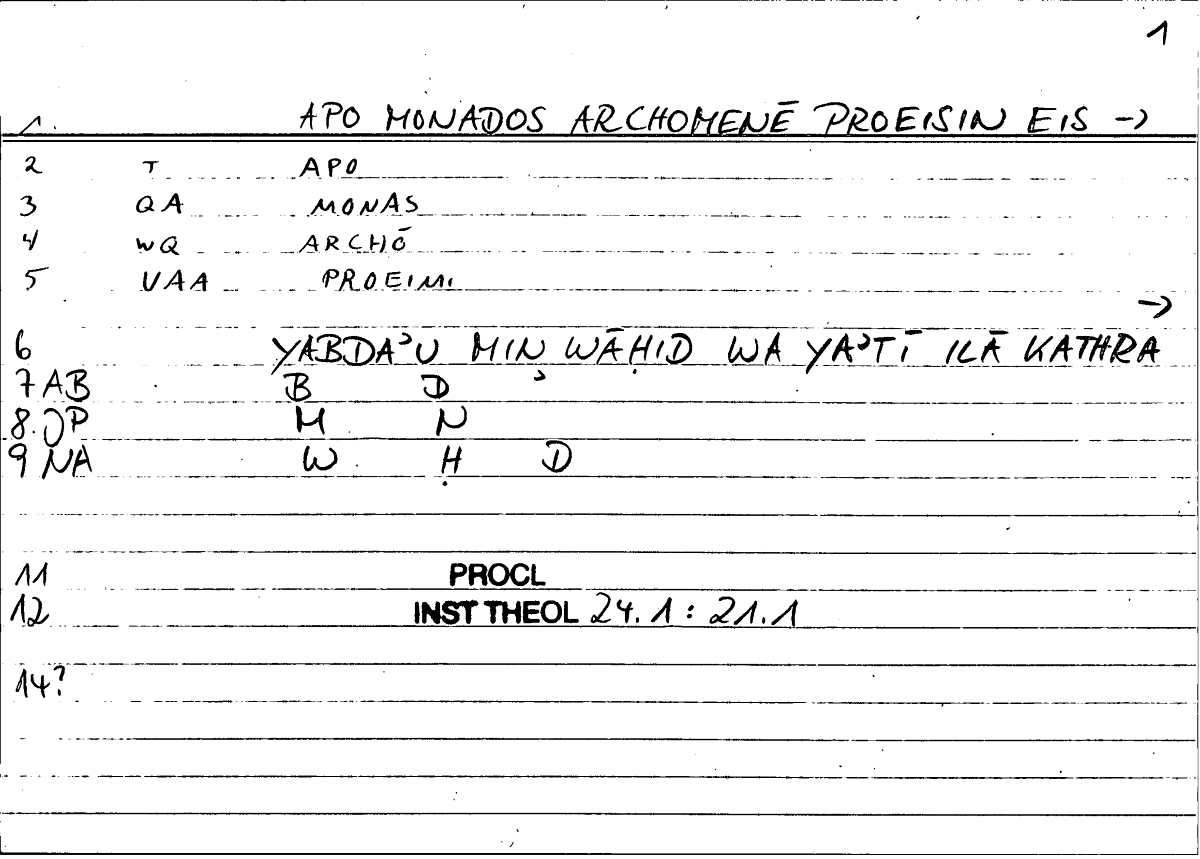 1
1. APO MONADOS ARCHOMENĒ PROEISIN EIS →
2 T APO
3 QA MONAS
4 WQ ARCHŌ
5 VAA PROEIMI
→
6 YABDAʾU MIN WĀḤID WA YAʾTĪ ILĀ KATHRA
7 AB B D ʾ
8. JP M N
9 NA W Ḥ D
11 PROCL
12 INST THEOL 24.1 : 21.1
14?